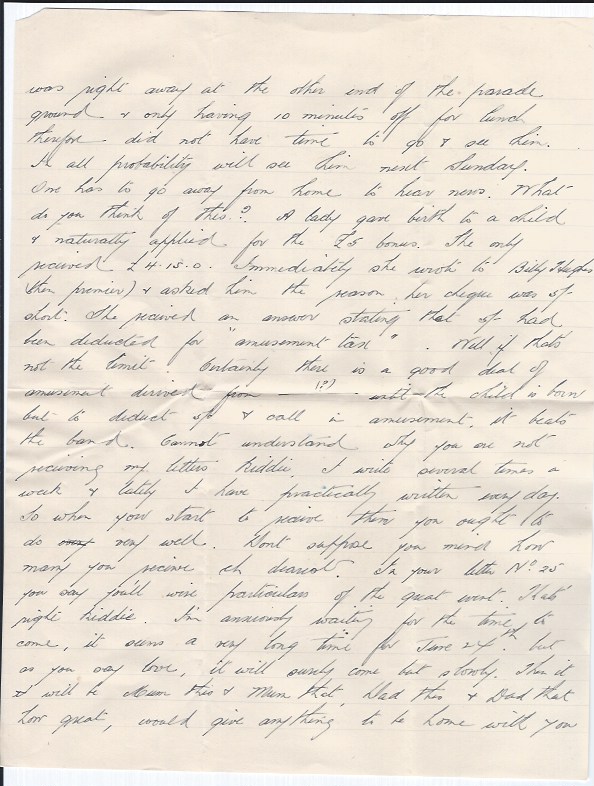 was right away at the other end of the parade
ground & only having 10 minutes off for lunch
therefore did not have time to go & see him.
In all probability will see him next Sunday.
One has to go away from home to hear news. What
do you think of this? A lady gave birth to a child
& naturally applied for the £5 bonus. She only
received £4.15.0. Immediately she wrote to Billy Hughes
(then premier) & asked him the reason her cheque was 5/-
short. She received an answer stating that 5/- had
been deducted for "amusement tax". Well if thats
not the limit. Certainly there is a good deal of
amusement derived from — (?) — until the child is born
but to deduct 5/- & call it amusement, it beats
the band. Cannot understand why you are not
receiving my letters Kiddie. I write several times a
week & lately I have practically written every day.
So when you start to receive them you ought to
do very well. Dont suppose you mind how
many you receive eh dearest. In your letter No. 25
you say you'll wire particulars of the great event. Thats
right Kiddie. I'm anxiously waiting for the time to
come, it seems a very long time for June 24th but
as you say love, it will surely come but slowly. Then it
will be Mum this & Mum that, Dad this & Dad that
how great, would give anything to be home with you